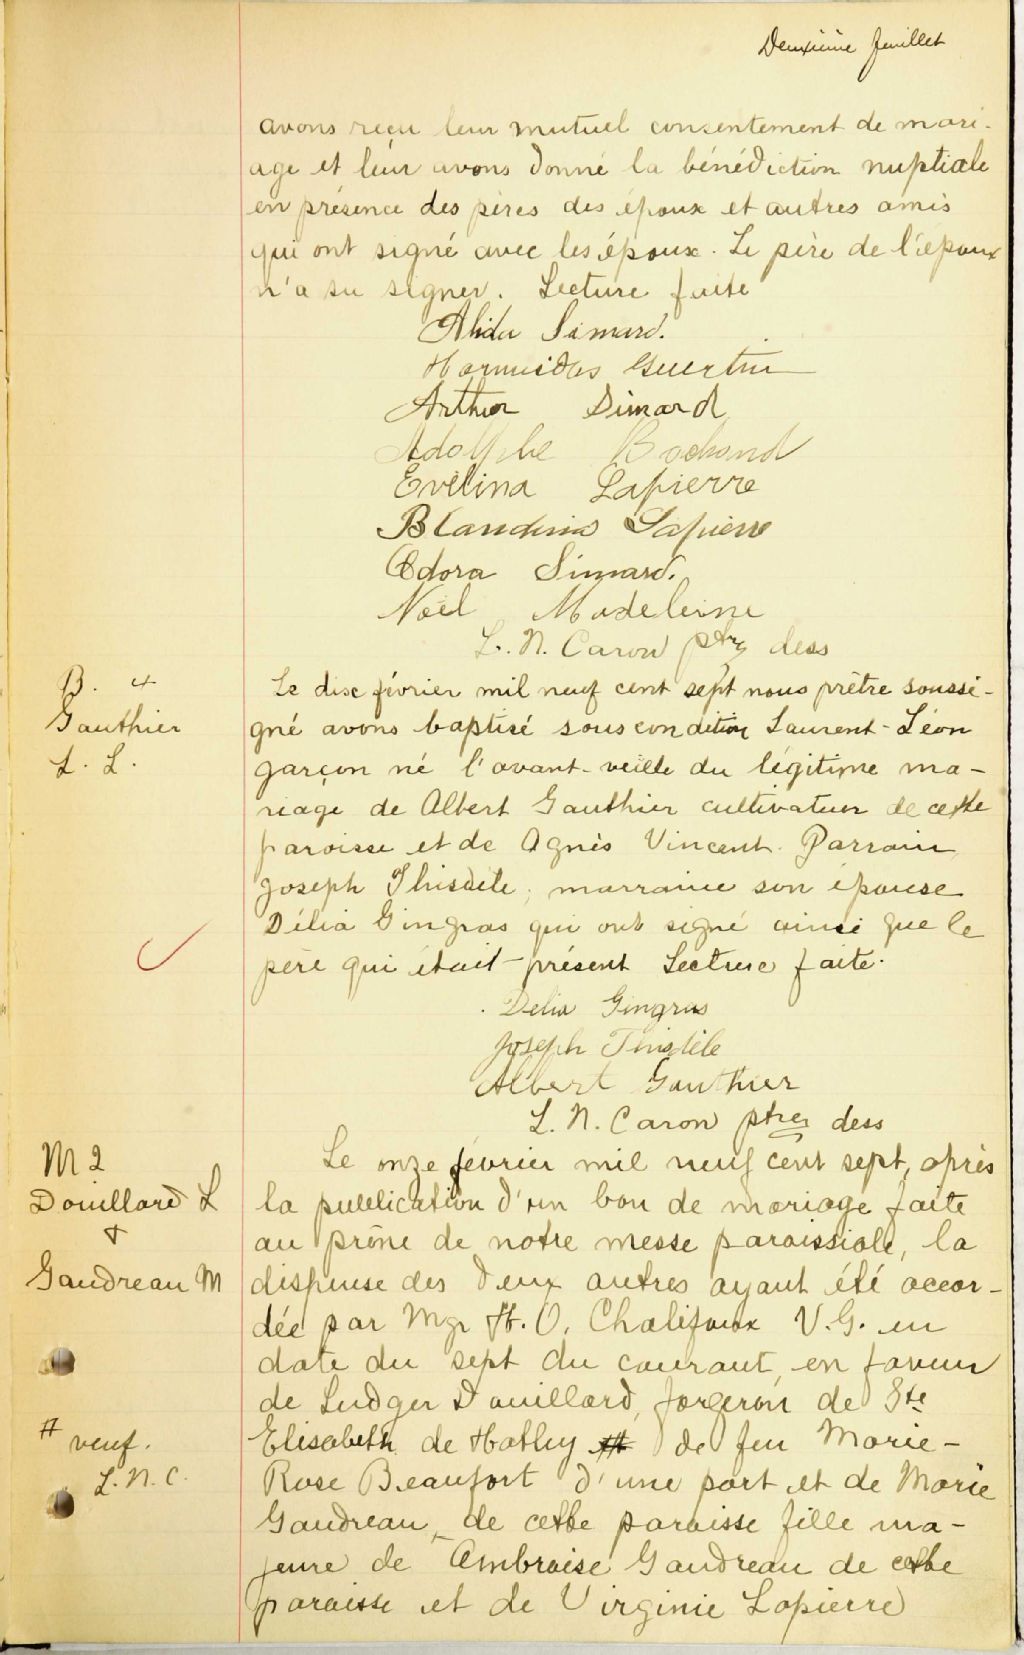 Deuxième feuillet
avons reçu leur mutuel consentement de mari-
age et leur avons donné la bénédiction nuptiale
en présence des pères des époux et autres amis
qui ont signé avec les époux. Le père de l'époux
n'a su signer. Lecture faite
Alida Simard.
Hormisdas Guertin
Arthur Simard
Adolphe
Evélina Lapierre
Blandina Lapierre
Odora Simard.
Noël Madeleine
L. N. Caron ptre dess
B. 4
Gauthier
L. L.
Le dix février mil neuf cent sept nous prêtre soussi-
gné avons baptisé sous condition Laurent-Léon
garçon né l'avant-veille du légitime ma-
riage de Albert Gauthier cultivateur de cette
paroisse et de Agnès Vincent. Parrain
Joseph Thisdèle, marraine son épouse
Délia Gingras qui ont signé ainsi que le
père qui était présent Lecture faite.
Delia Gingras
Joseph Thisdèle
Albert Gauthier
L. N. Caron ptre dess
M 2
Douillard L
+
Gaudreau M
Le onze février mil neuf cent sept, après
la publication d'un ban de mariage faite
au prône de notre messe paroissiale, la
dispense des deux autres ayant été accor-
dée par Mgr H. O. Chalifoux V.G. en
date du sept du courant, en faveur
de Ludger Douillard, forgeron de Ste
Elisabeth de Hatley # de feu Marie-
# veuf.
L. N. C.
Rose Beaufort d'une part et de Marie
Gaudreau de cette paroisse fille ma-
jeure de Ambroise Gaudreau de cette
paroisse et de Virginie Lapierre